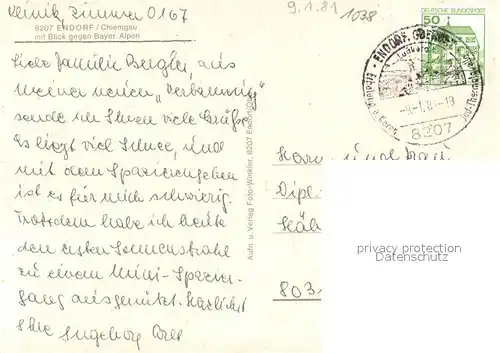 Klinik, Zimmer 0167
9.1.81 1038
8207 ENDORF / Chiemgau
mit Blick gegen Bayer. Alpen
Liebe Familie Bergler, aus
meiner neuen "Verbannung"
sende ich Ihnen viele Grüße.
Es liegt viel Schnee, und
mit dem Spazierengehen
ist es für mich schwierig.
Trotzdem habe ich heute
den ersten Sonnenstrahl
zu einem Mini-Spazier-
gang ausgenützt. Herzlichst
Ihre Ingeborg
Aufn. u. Verlag Foto-Winkler, 8207 Endorf/Obb.
DEUTSCHE BUNDESPOST
50
ENDORF, OBERBAY
8207
Herrn und Frau
Dipl.
803
privacy protection
Datenschutz